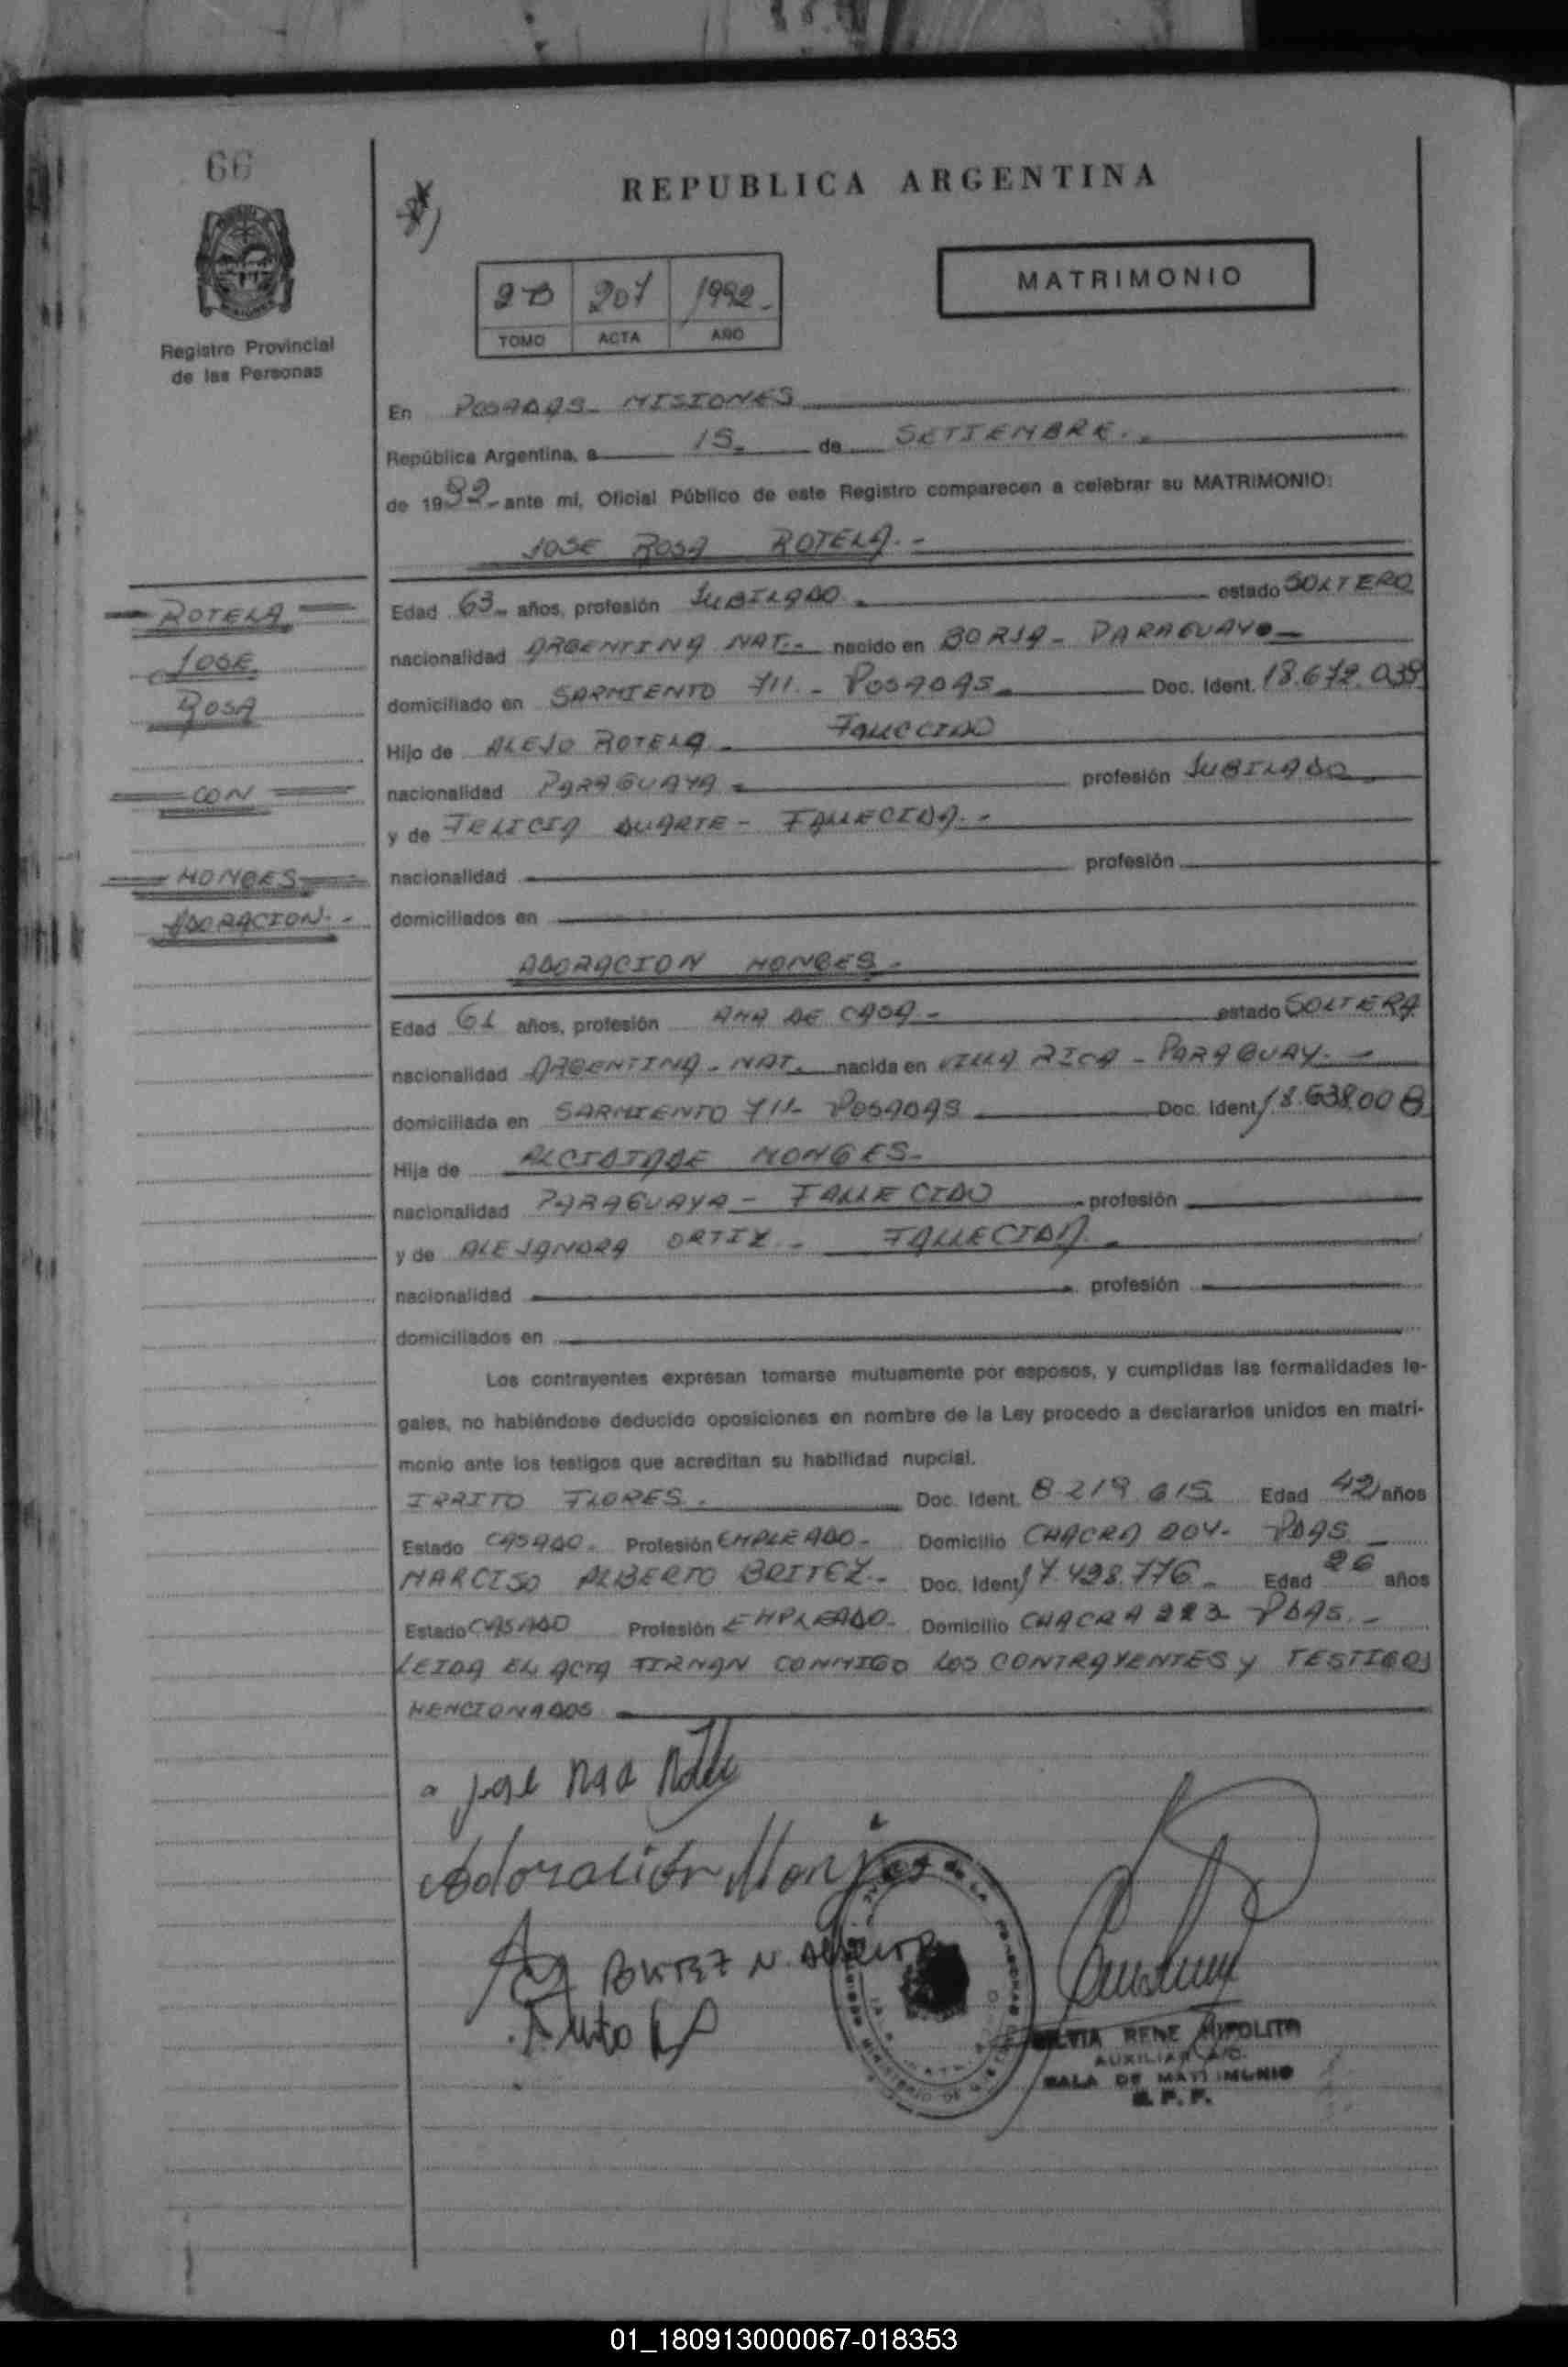 66
REPUBLICA ARGENTINA
Registro Provincial
de las Personas
2B 207 1992.
TOMO ACTA AÑO
MATRIMONIO
En POSADAS - MISIONES
República Argentina, a 15. de SETIEMBRE.
de 1992 - ante mi, Oficial Público de este Registro comparecen a celebrar su MATRIMONIO:
JOSE ROSA ROTELA. -
ROTELA
JOSE
ROSA
CON
MONGES
ADORACION. -
Edad 63 - años, profesión JUBILADO. estado SOLTERO
nacionalidad ARGENTINA NAT. - nacido en BORJA - PARAGUAYO -
domiciliado en SARMIENTO 711. - POSADAS. Doc. Ident. 18.672.039
Hijo de ALEJO ROTELA - FALLECIDO
nacionalidad PARAGUAYA - profesión JUBILADO
y de FELICIA DUARTE - FALLECIDA. -
nacionalidad profesión
domiciliados en
ADORACION MONGES -
Edad 61 años, profesión AMA DE CASA - estado SOLTERA
nacionalidad ARGENTINA - NAT. nacida en VILLA RICA - PARAGUAY. -
domiciliada en SARMIENTO 711 - POSADAS Doc. Ident. 18.638.008
Hija de ALCIBIADE MONGES -
nacionalidad PARAGUAYA - FALLECIDO profesión
y de ALEJANDRA ORTIZ - FALLECIDA.
nacionalidad profesión
domiciliados en
Los contrayentes expresan tomarse mutuamente por esposos, y cumplidas las formalidades le-
gales, no habiéndose deducido oposiciones en nombre de la Ley procedo a declararlos unidos en matri-
monio ante los testigos que acreditan su habilidad nupcial.
IRRITO FLORES. Doc. Ident. 8.219.615 Edad 42 años
Estado CASADO - Profesión EMPLEADO - Domicilio CHACRA 204 - PDAS -
NARCISO ALBERTO BRITEZ. - Doc. Ident. 17.428.776 - Edad 26 años
Estado CASADO Profesión EMPLEADO - Domicilio CHACRA 223 - PDAS. -
LEIDA EL ACTA FIRMAN CONMIGO LOS CONTRAYENTES y TESTIGOS
MENCIONADOS
Adoración Monjes
N. Alberto
SILVIA RENE HIPOLITO
AUXILIAR A/C.
SALA DE MATRIMONIO
R. P. P.
01_180913000067-018353